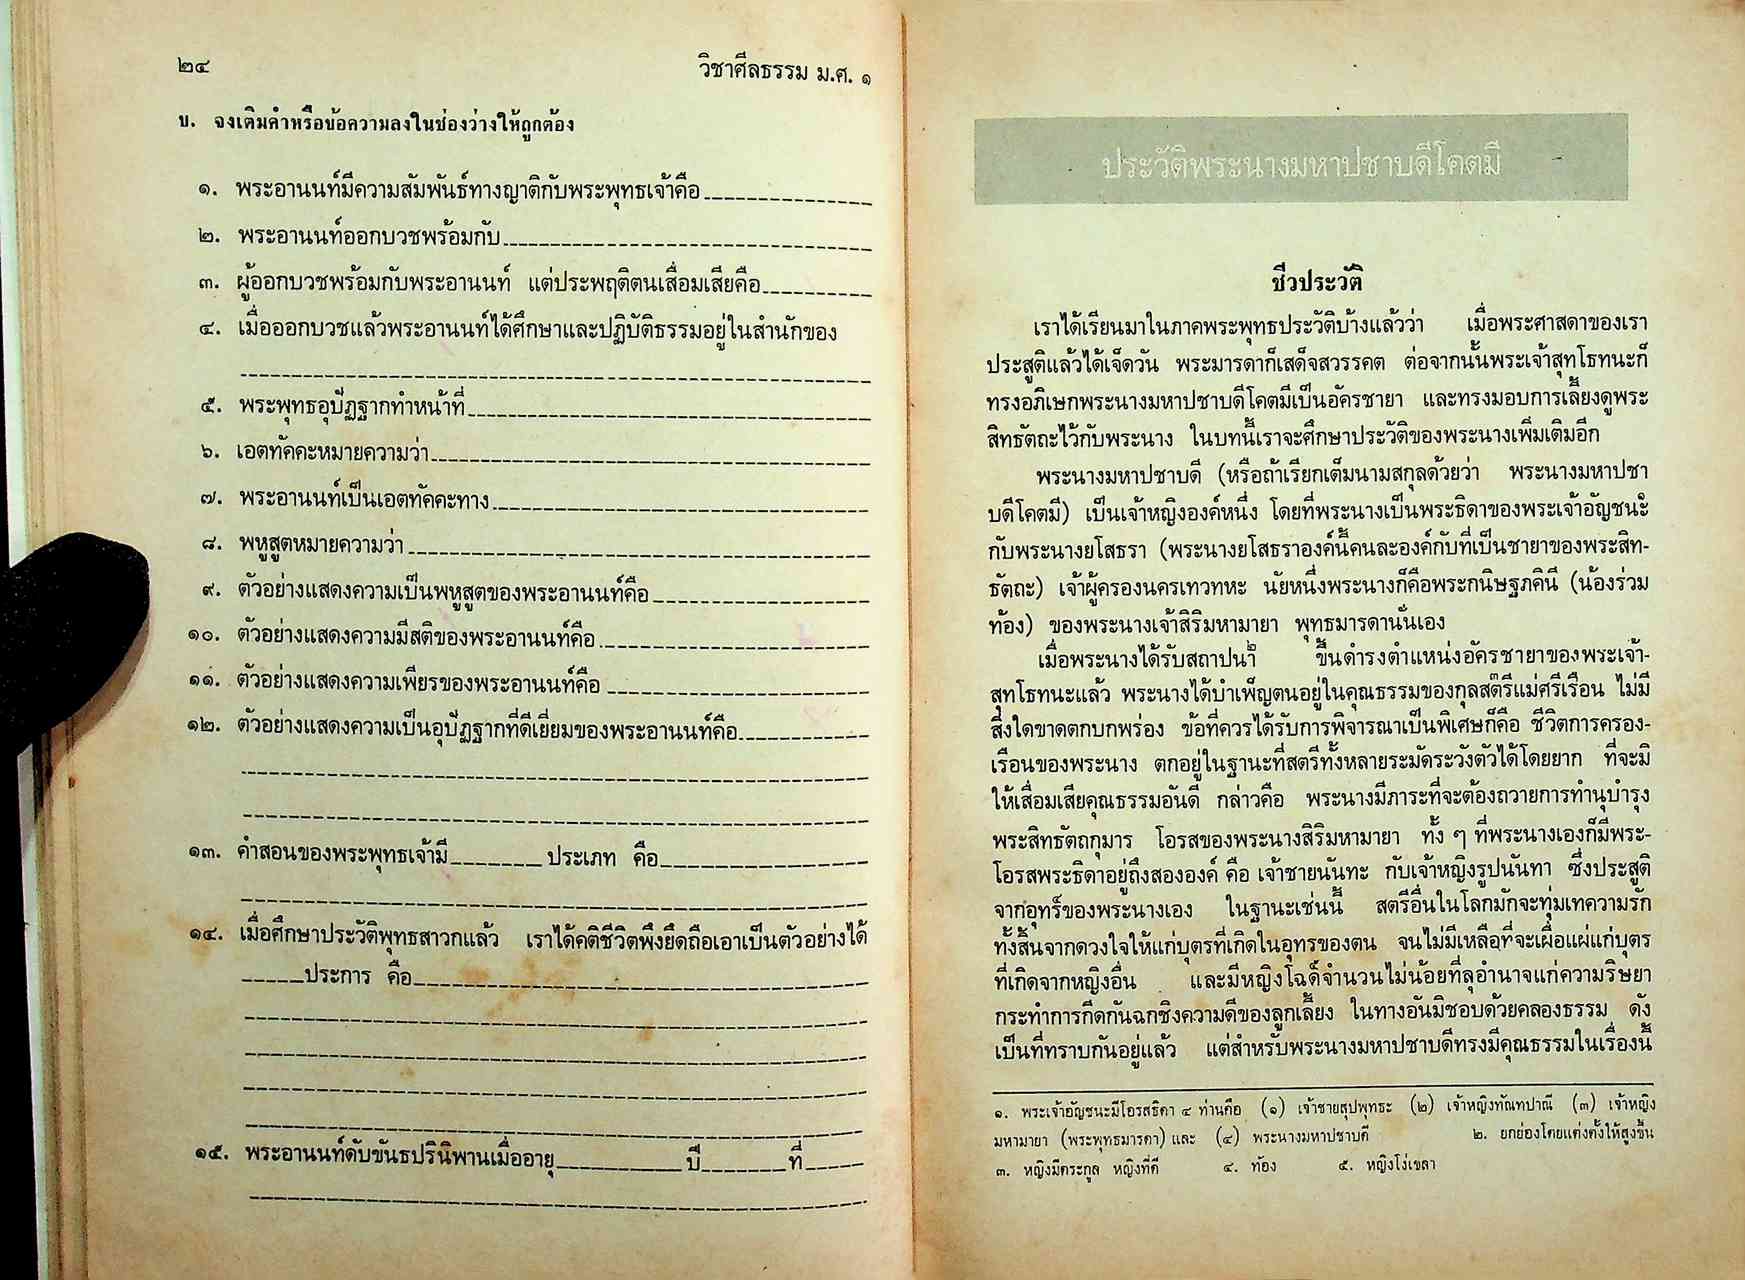 ๒๔
วิชาศีลธรรม ม.ศ. ๑
บ. จงเติมคำหรือข้อความลงในช่องว่างให้ถูกต้อง
๑. พระอานนท์มีความสัมพันธ์ทางญาติกับพระพุทธเจ้าคือ
๒. พระอานนท์ออกบวชพร้อมกับ
๓. ผู้ออกบวชพร้อมกับพระอานนท์ แต่ประพฤติตนเสื่อมเสียคือ
๔. เมื่อออกบวชแล้วพระอานนท์ได้ศึกษาและปฏิบัติธรรมอยู่ในสำนักของ
๕. พระพุทธอุปัฏฐากทำหน้าที่
๖. เอตทัคคะหมายความว่า
๗. พระอานนท์เป็นเอตทัคคะทาง
๘. พหูสูตหมายความว่า
๙. ตัวอย่างแสดงความเป็นพหูสูตของพระอานนท์คือ
๑๐. ตัวอย่างแสดงความมีสติของพระอานนท์คือ
๑๑. ตัวอย่างแสดงความเพียรของพระอานนท์คือ
๑๒. ตัวอย่างแสดงความเป็นอุปัฏฐากที่ดีเยี่ยมของพระอานนท์คือ
๑๓. คำสอนของพระพุทธเจ้ามี________ ประเภท คือ
๑๔. เมื่อศึกษาประวัติพุทธสาวกแล้ว เราได้คติชีวิตพึงยึดถือเอาเป็นตัวอย่างได้
______ประการ คือ
๑๕. พระอานนท์ดับขันธปรินิพานเมื่ออายุ___________ ปี_______ ที่_____
ประวัติพระนางมหาปชาบดีโคตมี
ชีวประวัติ
เราได้เรียนมาในภาคพระพุทธประวัติบ้างแล้วว่า เมื่อพระศาสดาของเรา
ประสูติแล้วได้เจ็ดวัน พระมารดาก็เสด็จสวรรคต ต่อจากนั้นพระเจ้าสุทโธทนะก็
ทรงอภิเษกพระนางมหาปชาบดีโคตมีเป็นอัครชายา และทรงมอบการเลี้ยงดูพระ
สิทธัตถะไว้กับพระนาง ในบทนี้เราจะศึกษาประวัติของพระนางเพิ่มเติมอีก
พระนางมหาปชาบดี (หรือถ้าเรียกเต็มนามสกุลด้วยว่า พระนางมหาปชา
บดีโคตมี) เป็นเจ้าหญิงองค์หนึ่ง โดยที่พระนางเป็นพระธิดาของพระเจ้าอัญชนะ๑
กับพระนางยโสธรา (พระนางยโสธราองค์นี้คนละองค์กับที่เป็นชายาของพระสิท-
ธัตถะ) เจ้าผู้ครองนครเทวทหะ นัยหนึ่งพระนางก็คือพระกนิษฐภคินี (น้องร่วม
ท้อง) ของพระนางเจ้าสิริมหามายา พุทธมารดานั่นเอง
เมื่อพระนางได้รับสถาปนา๒ ขึ้นดำรงตำแหน่งอัครชายาของพระเจ้า-
สุทโธทนะแล้ว พระนางได้บำเพ็ญตนอยู่ในคุณธรรมของกุลสตรี๓แม่ศรีเรือน ไม่มี
สิ่งใดขาดตกบกพร่อง ข้อที่ควรได้รับการพิจารณาเป็นพิเศษก็คือ ชีวิตการครอง-
เรือนของพระนาง ตกอยู่ในฐานะที่สตรีทั้งหลายระมัดระวังตัวได้โดยยาก ที่จะมิ
ให้เสื่อมเสียคุณธรรมอันดี กล่าวคือ พระนางมีภาระที่จะต้องถวายการทำนุบำรุง
พระสิทธัตถกุมาร โอรสของพระนางสิริมหามายา ทั้ง ๆ ที่พระนางเองก็มีพระ-
โอรสพระธิดาอยู่ถึงสององค์ คือ เจ้าชายนันทะ กับเจ้าหญิงรูปนันทา ซึ่งประสูติ
จากอุทร๔ของพระนางเอง ในฐานะเช่นนี้ สตรีอื่นในโลกมักจะทุ่มเทความรัก
ทั้งสิ้นจากดวงใจให้แก่บุตรที่เกิดในอุทรของตน จนไม่มีเหลือที่จะเผื่อแผ่แก่บุตร
ที่เกิดจากหญิงอื่น และมีหญิงโฉด๕จำนวนไม่น้อยที่ลุอำนาจแก่ความริษยา
กระทำการกีดกันฉกชิงความดีของลูกเลี้ยง ในทางอันมิชอบด้วยคลองธรรม ดัง
เป็นที่ทราบกันอยู่แล้ว แต่สำหรับพระนางมหาปชาบดีทรงมีคุณธรรมในเรื่องนี้
๑. พระเจ้าอัญชนะมีโอรสธิดา ๔ ท่านคือ (๑) เจ้าชายสุปพุทธะ (๒) เจ้าหญิงทัณฑปาณี (๓) เจ้าหญิง
มหามายา (พระพุทธมารดา) และ (๔) พระนางมหาปชาบดี ๒. ยกย่องโดยแต่งตั้งให้สูงขึ้น
๓. หญิงมีตระกูล หญิงที่ดี ๔. ท้อง ๕. หญิงโง่เขลา